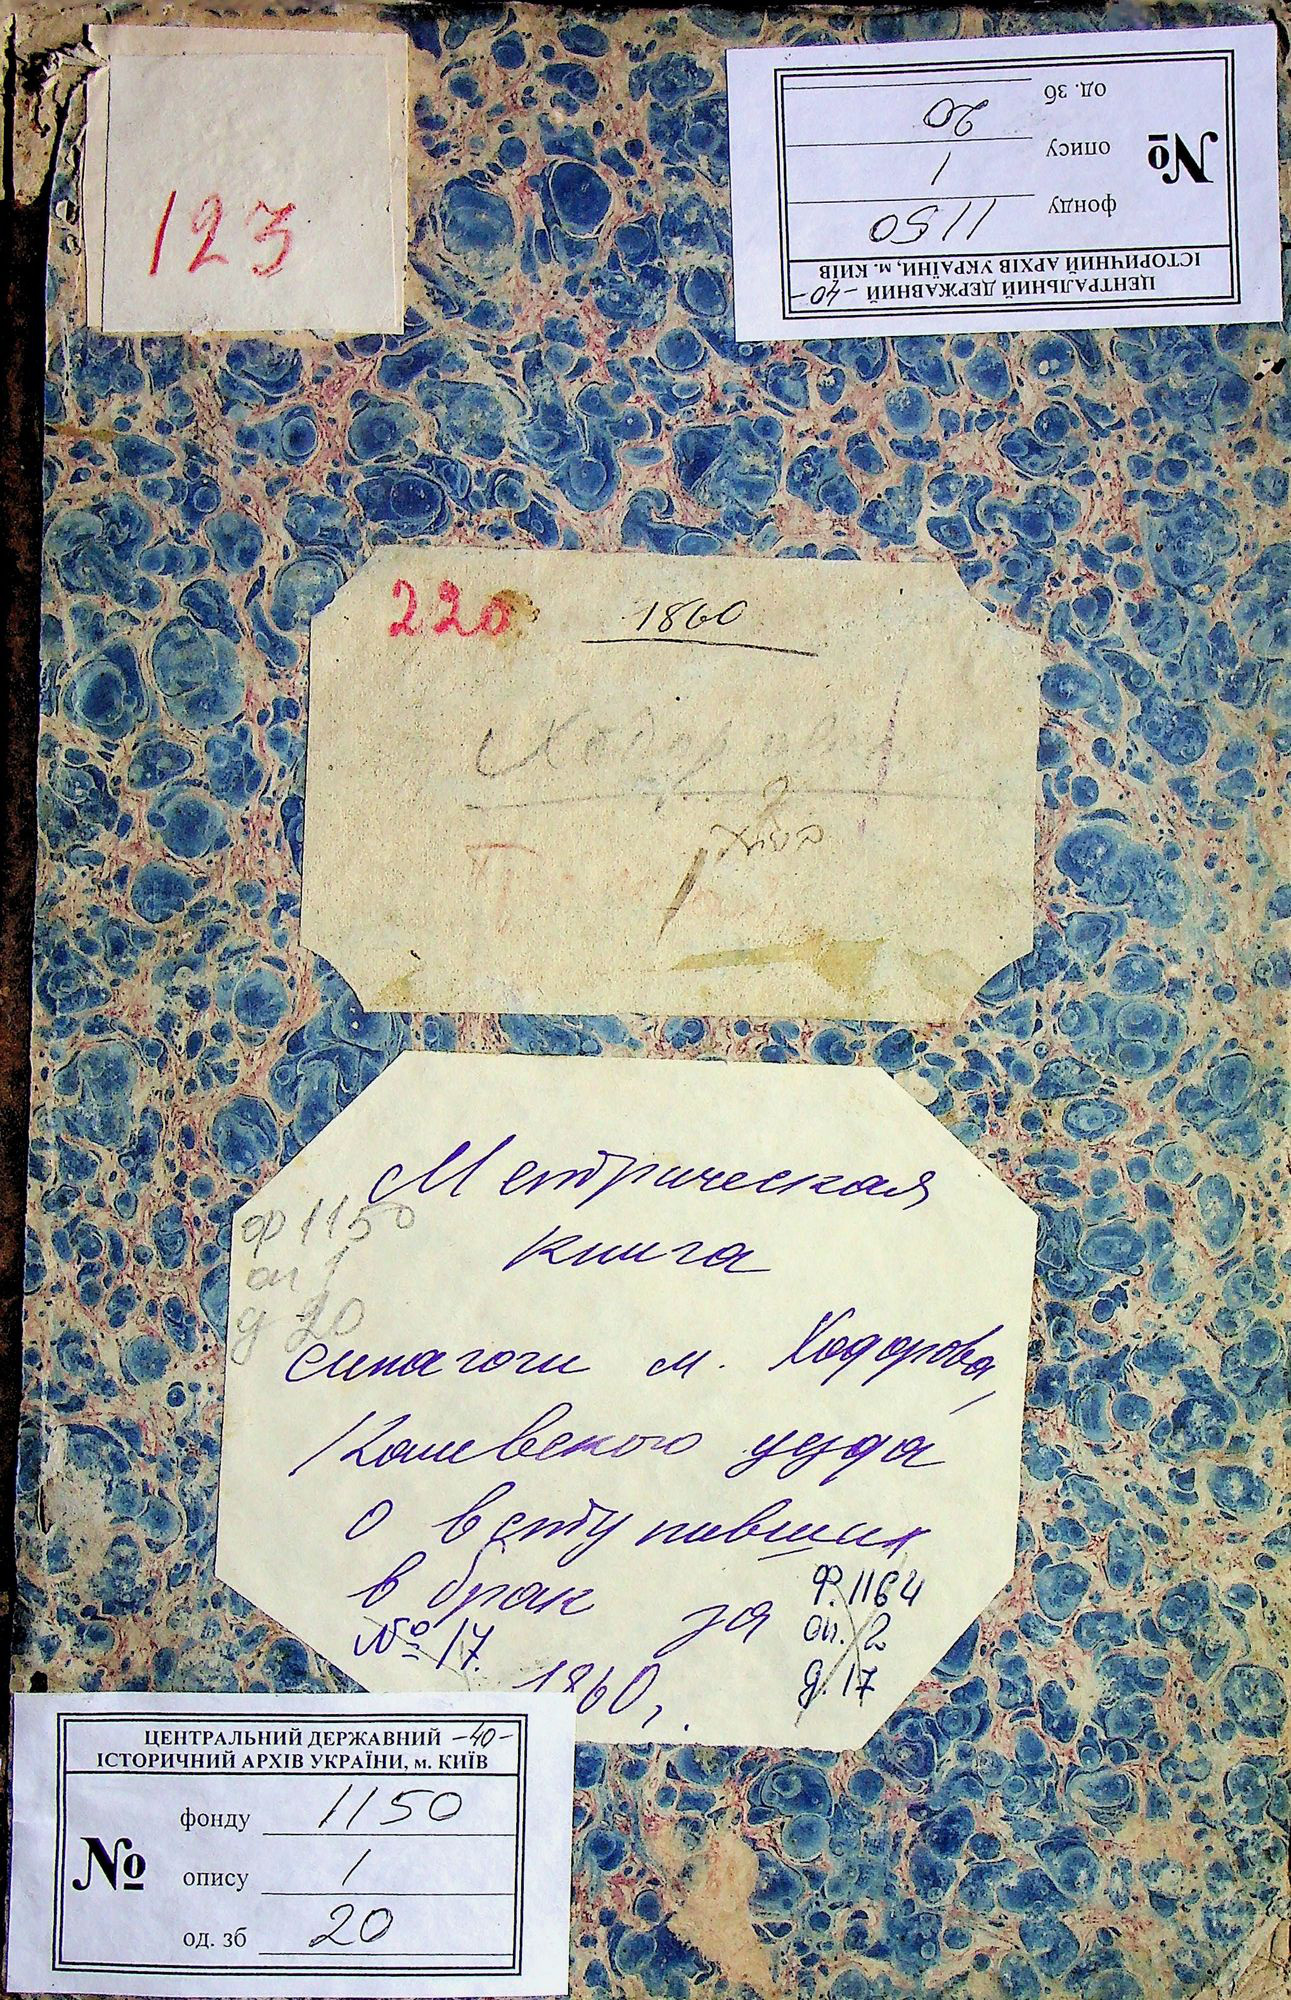 123
ЦЕНТРАЛЬНИЙ ДЕРЖАВНИЙ -40-
ІСТОРИЧНИЙ АРХІВ УКРАЇНИ, м. КИЇВ
№
фонду 1150
опису 1
од. зб 20
220 1860
Метрическая
книга
ф 1150
оп 1
д 20
синагоги м. Ходорова,
Каневского уезда
о вступивших
в брак за
№ 17.
1860,
Ф. 1164
оп. 2
д. 17
ЦЕНТРАЛЬНИЙ ДЕРЖАВНИЙ -40-
ІСТОРИЧНИЙ АРХІВ УКРАЇНИ, м. КИЇВ
№
фонду 1150
опису 1
од. зб 20